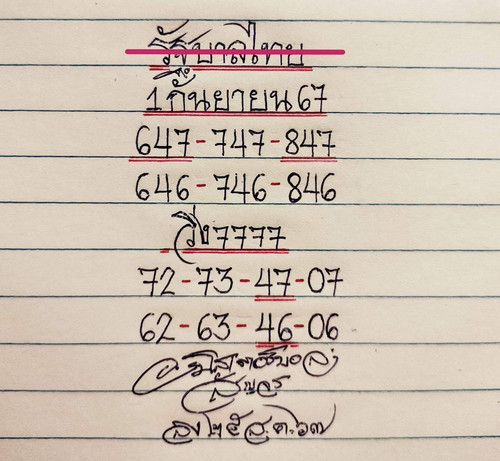 รัฐบาลไทย
1 กันยายน 67
647-747-847
646-746-846
วิ่ง 7777
72-73-47-07
62-63-46-06